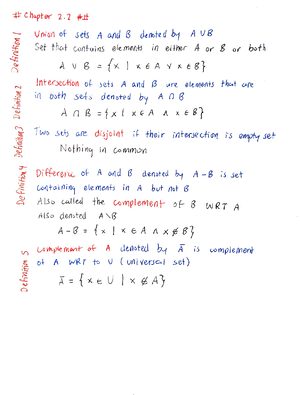 # Chapter 2.2 ##
Definition 1
Union of sets A and B denoted by A ∪ B
Set that contains elements in either A or B or both
A ∪ B = {x | x ∈ A ∨ x ∈ B}
Definition 2
Intersection of sets A and B are elements that are
in both sets denoted by A ∩ B
A ∩ B = {x | x ∈ A ∧ x ∈ B}
Definition 3
Two sets are disjoint if their intersection is empty set
Nothing in common
Definition 4
Difference of A and B denoted by A-B is set
containing elements in A but not B
Also called the complement of B WRT A
Also denoted A\B
A-B = {x | x ∈ A ∧ x ∉ B}
Definition 5
Complement of A denoted by Ā is complement
of A WRT to U (universal set)
Ā = {x ∈ U | x ∉ A}